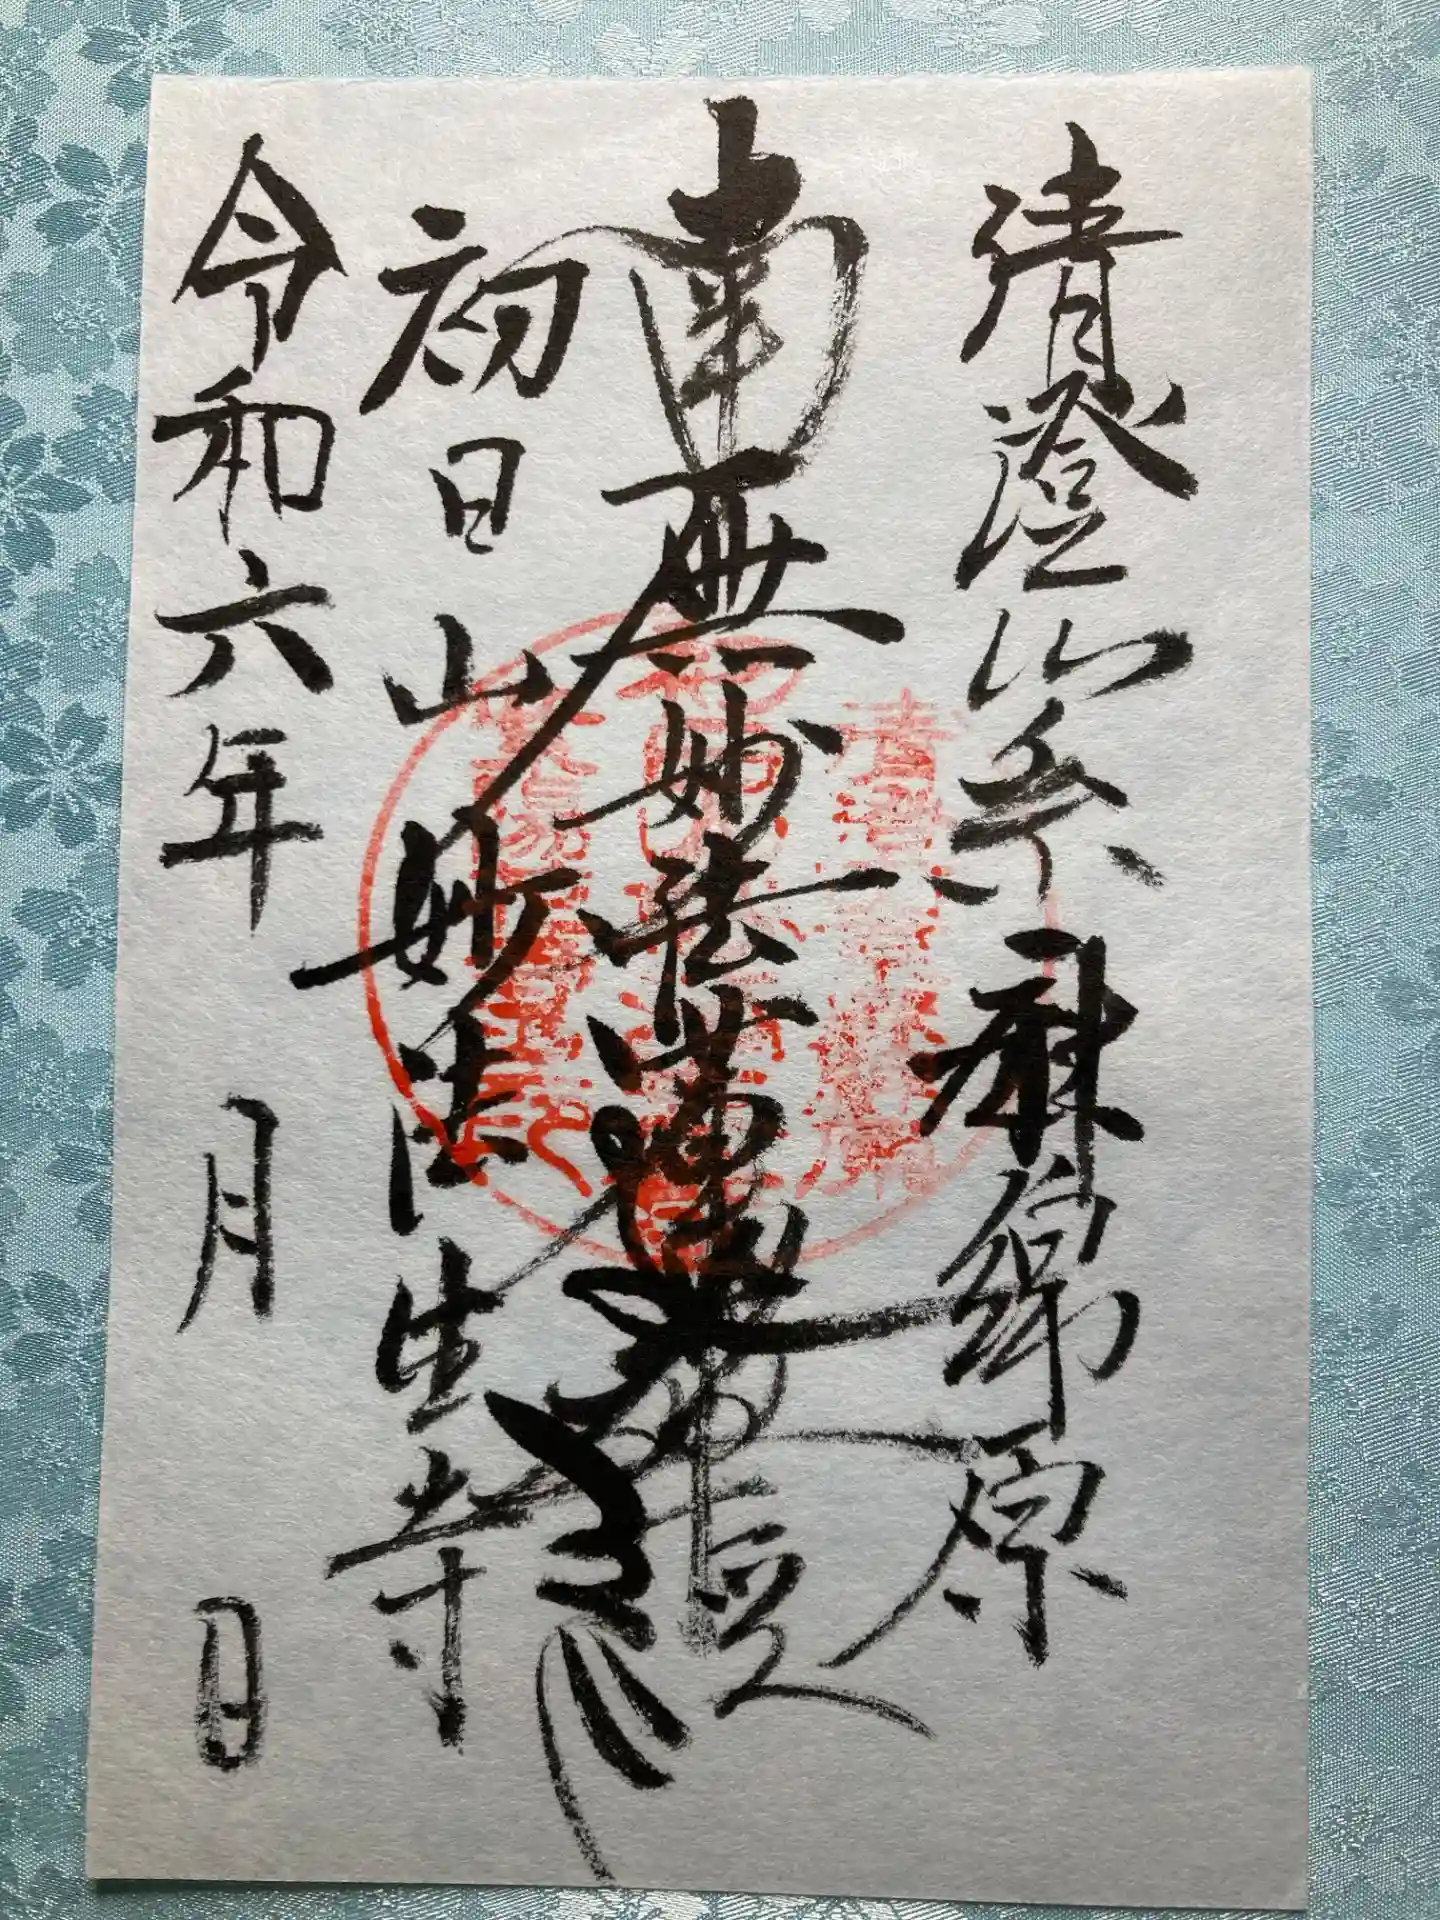 清澄山系麻綿原
南無妙法蓮華經
初日山妙法生寺
令和六年 月 日